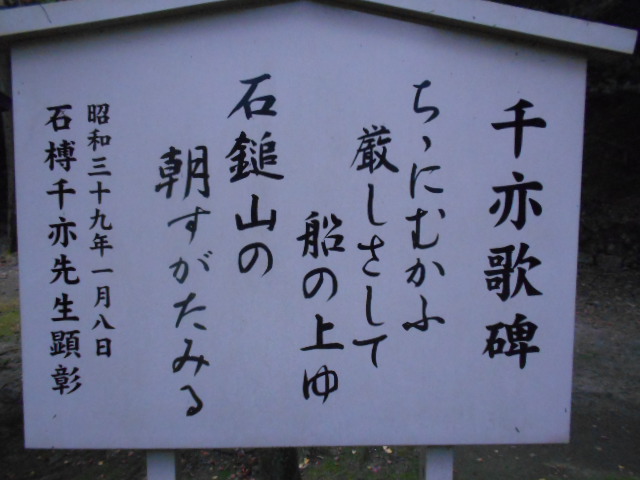 千亦歌碑
ちゝにむかふ
厳しさして
船の上ゆ
石鎚山の
朝すがたみる
昭和三十九年一月八日
石榑千亦先生顕彰